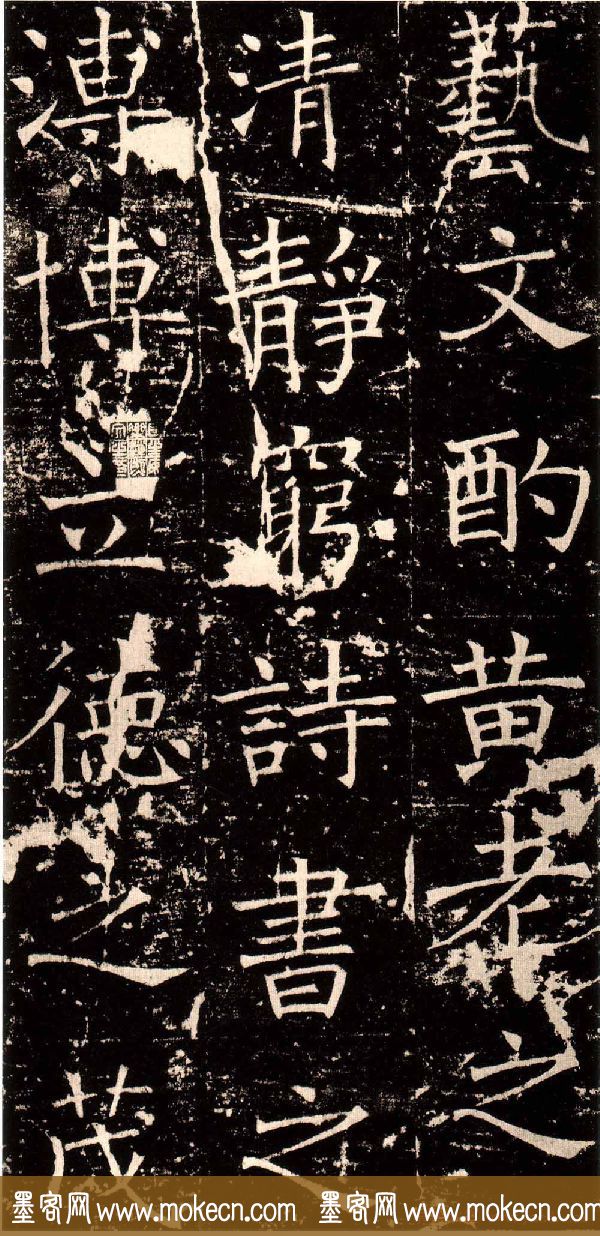 藝文酌黃老之
清靜窮詩書之
溥博立德之茂
墨客网 www.mokecn.com 墨客网 www.mokecn.com